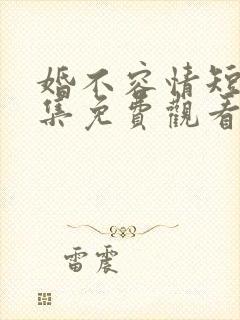 婚不容情短
集免費觀看
雷震